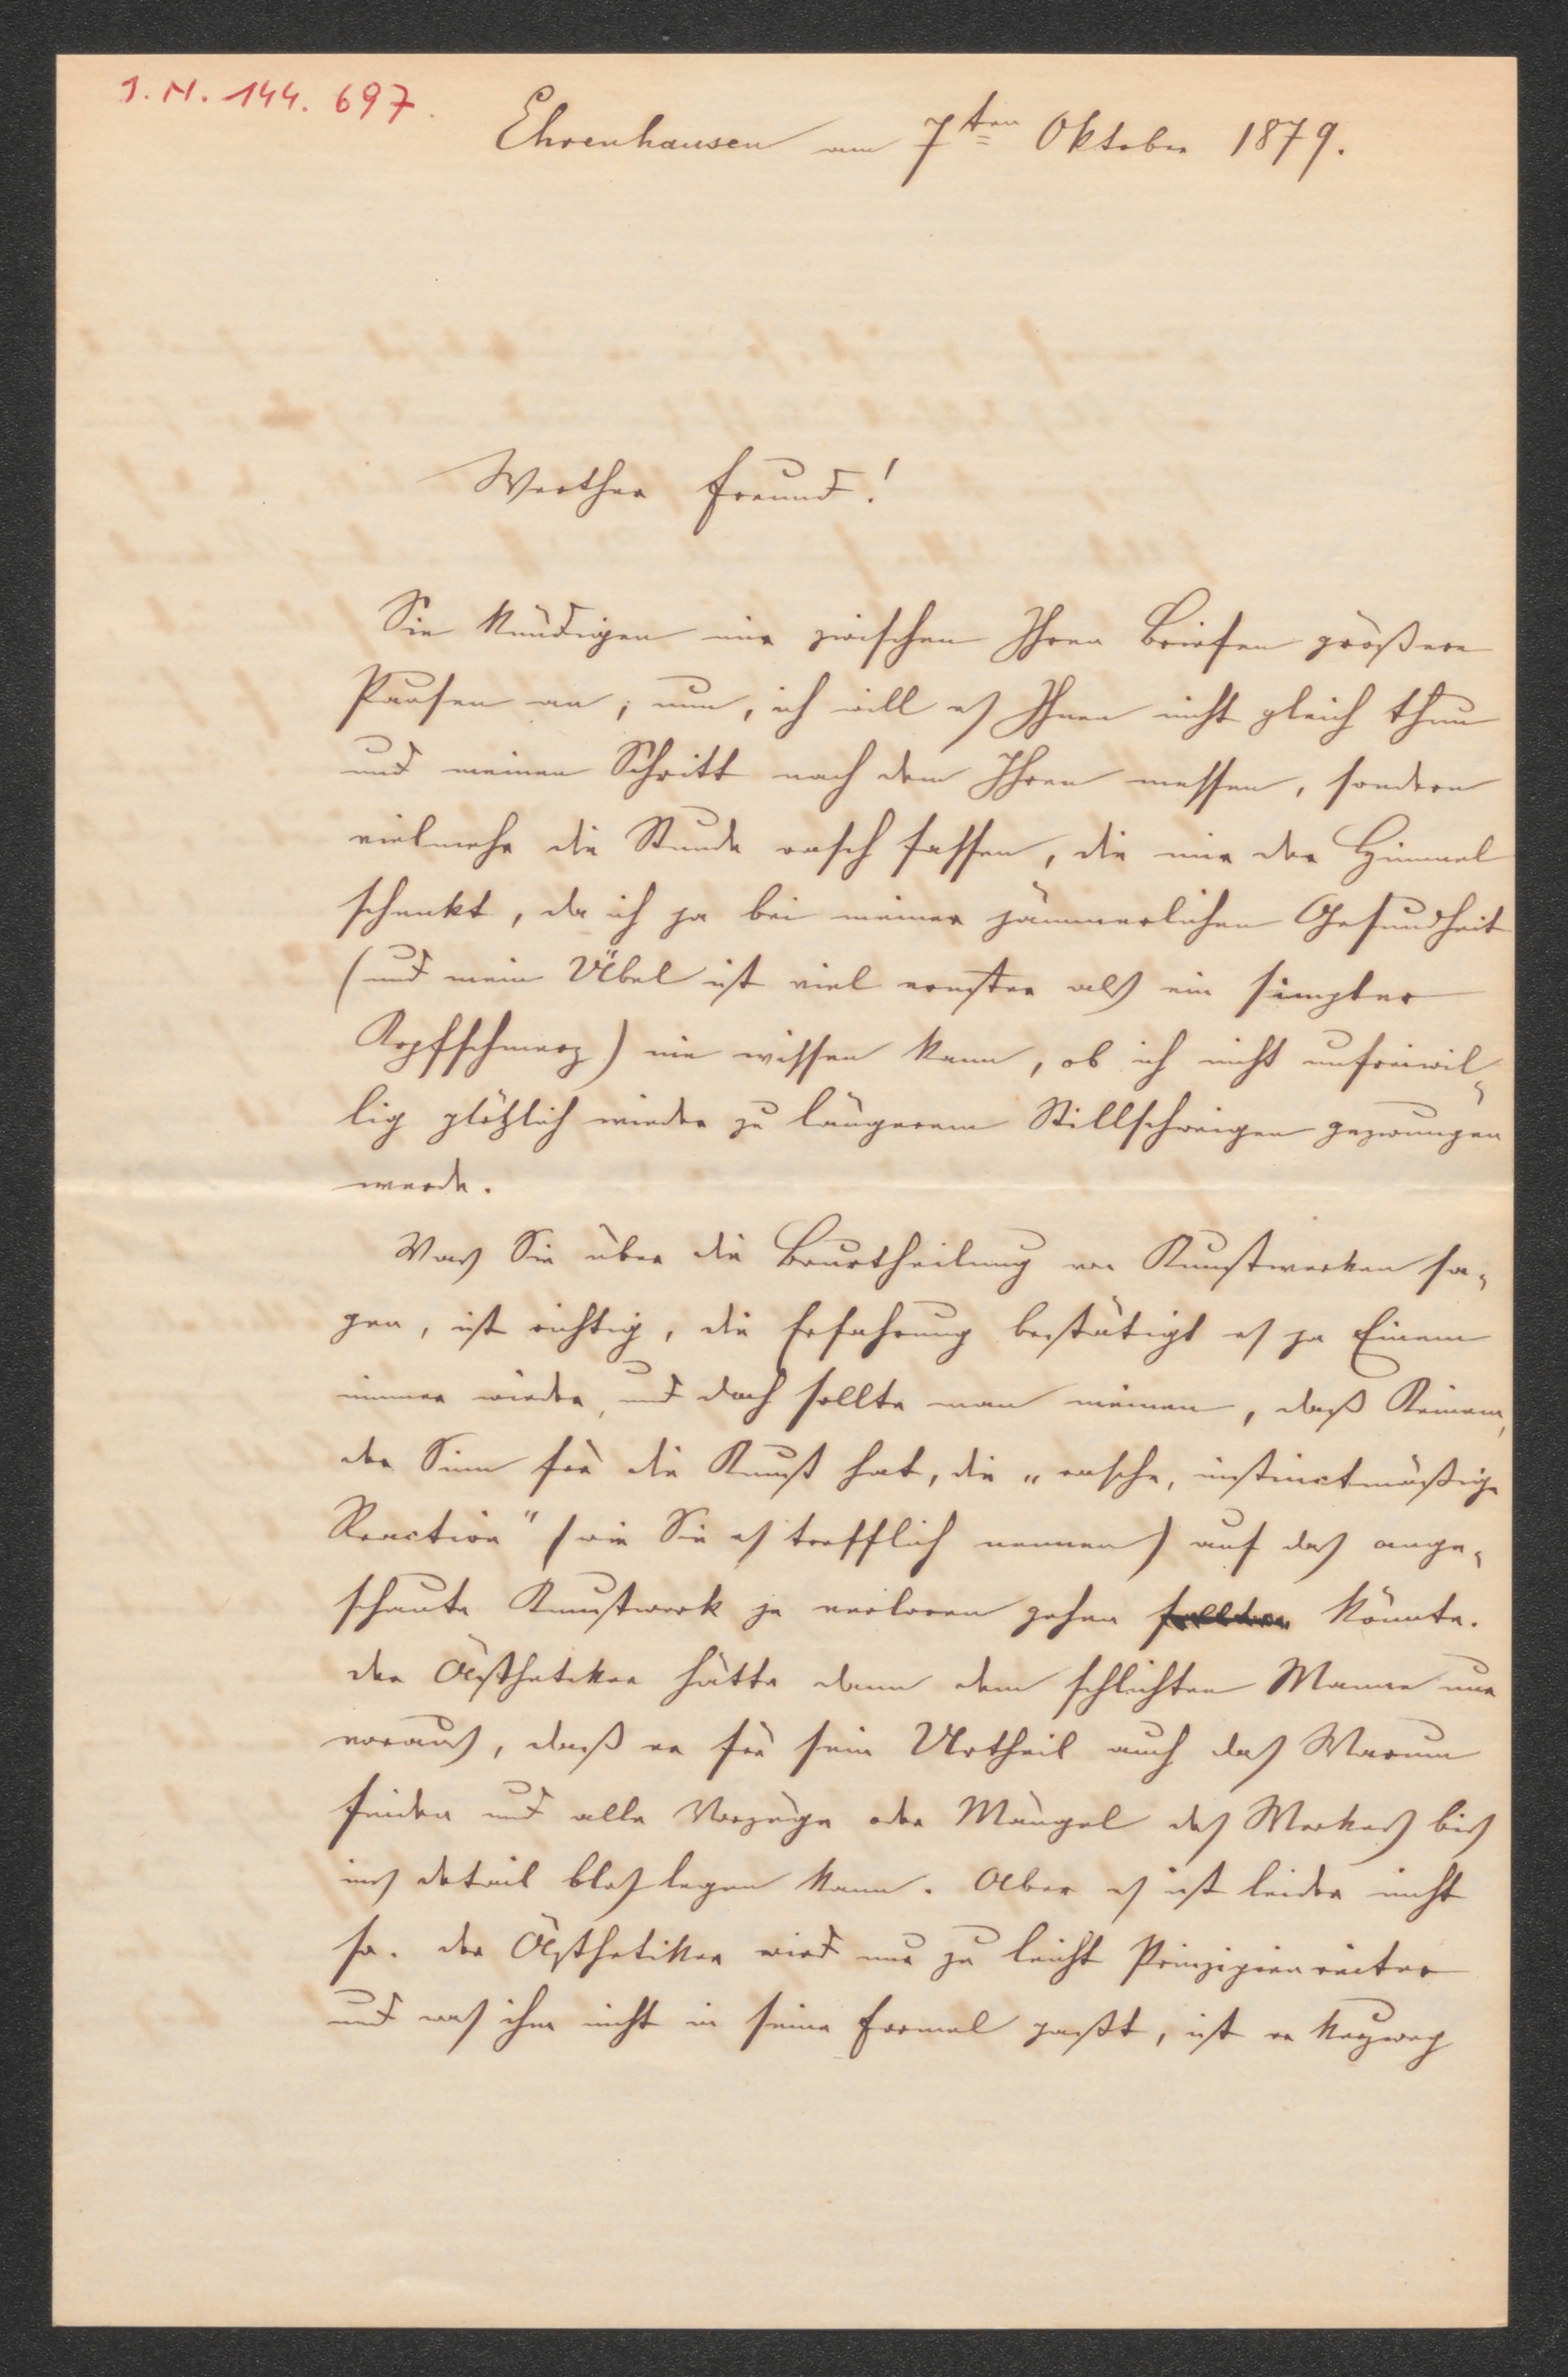 I. N. 144.697.
Ehrenhausen am 7ten Oktober 1879.
Werther Freund!
Sie kündigen mir zwischen Ihren Briefen größere
Pausen an; nun, ich will es Ihnen nicht gleich thun
und meinen Schritt nach dem Ihren messen, sondern
vielmehr die Stunde rasch fassen, die mir der Himmel
schenkt, da ich ja bei meiner jämmerlichen Gesundheit
(und mein Übel ist viel ernster als ein simpler
Kopfschmerz) nie wissen kann, ob ich nicht unfreiwil-
lig plötzlich wieder zu längerem Stillschweigen gezwungen
werde.
Was Sie über die Beurtheilung von Kunstwerken sa-
gen, ist richtig, die Erfahrung bestätigt es ja Einem
immer wieder, und doch sollte man meinen, daß Keinem,
der Sinn für die Kunst hat, die „rasche, instinctmäßige
Reaction" (wie Sie es trefflich nennen) auf das ange-
schaute Kunstwerk je verloren gehen könnte.
Der Ästhetiker hätte dann dem schlichten Manne nur
voraus, daß er für sein Urtheil auch das Warum
finden und alle Vorzüge oder Mängel des Werkes bis
ins Detail bloslegen kann. Aber es ist leider nicht
so. Der Ästhetiker wird nur zu leicht Prinzipienreiter
und was ihm nicht in seine Formel paßt, ist er kurzweg